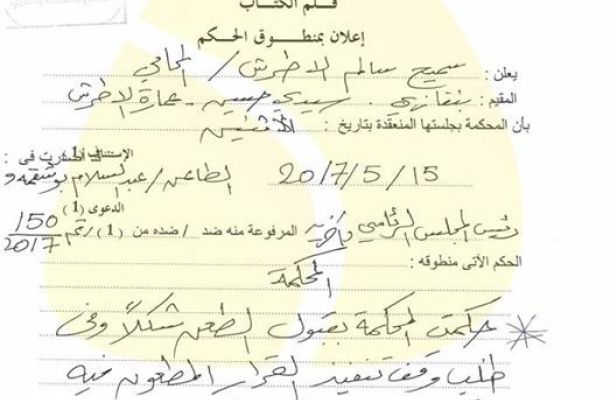 قلم الكتاب
إعلان بمنطوق الحكم
يعلن : سميح سالم الاطرش / المحامي
المقيم : بنغازي . سيدي حسين - عمارة الاطرش
بأن المحكمة بجلستها المنعقدة بتاريخ : الاثنين
15 / 5 / 2017 الاستئناف (1) أصدرت في :
الطاعن / عبدالسلام
رئيس المجلس الرئاسي وآخرين المرفوعة منه ضد / ضده من (1) الدعوى (1) رقم 150 / 2017
الحكم الأتى منطوقه :
المحكمة
حكمت المحكمة بقبول الطعن شكلاً وفي
طلب وقف تنفيذ القرار المطعون فيه